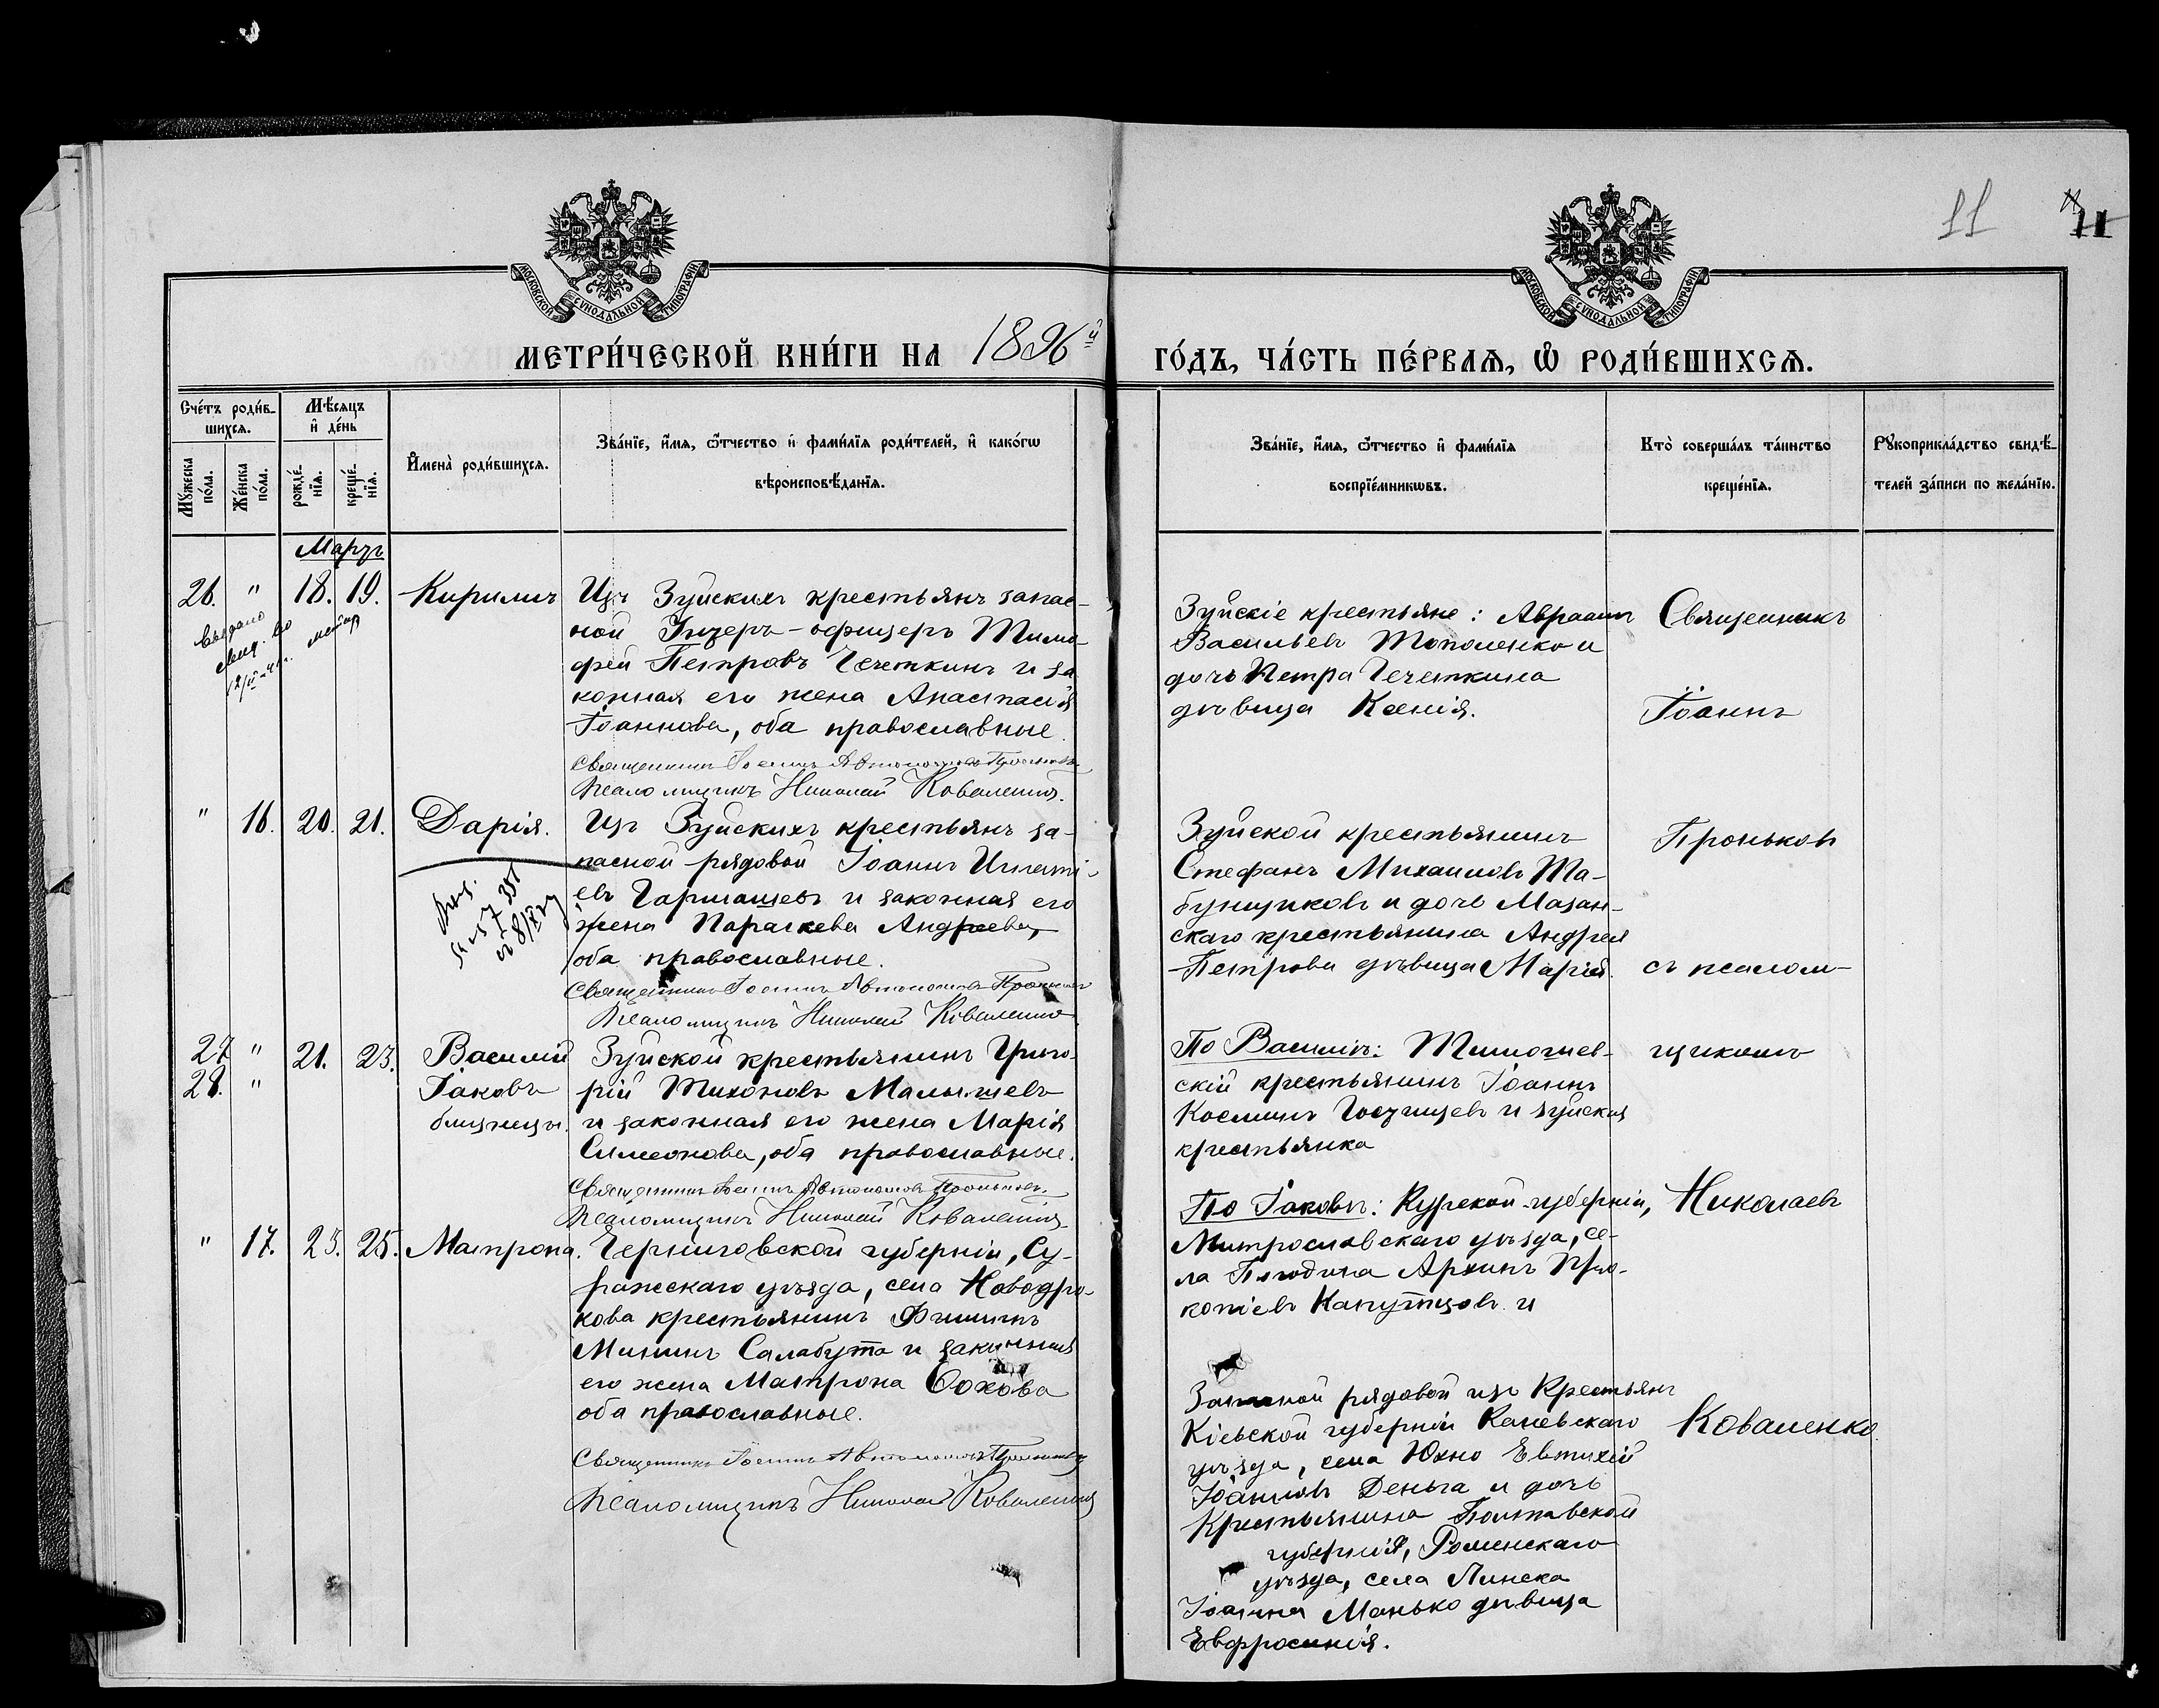 11
11
МОСКОВСКОЙ СѴНОДАЛЬНОЙ ТИПОГРАФІИ
МОСКОВСКОЙ СѴНОДАЛЬНОЙ ТИПОГРАФІИ
МЕТРИ́ЧЕСКОЙ КНИ́ГИ НА 1896й
ГО́ДЪ, ЧА́СТЬ ПЕ́РВАѦ, Ѡ РОДИ́ВШИХСѦ.
Сче́тъ роди́в-
шихсѧ.
Мѣ́сѧцъ
и҆ де́нь
Мꙋ́жеска
по́ла.
Же́нска
по́ла.
рожде́-
нїѧ.
креще́-
нїѧ.
И҆мена̀ роди́вшихсѧ.
Зва́нїе, и҆́мѧ, ѻ҆́тчество и҆ фами́лїѧ роди́телей, и҆ како́гѡ
вѣроисповѣ́данїѧ.
Зва́нїе, и҆́мѧ, ѻ҆́тчество и҆ фами́лїѧ
воспрїе́мникѡвъ.
Кто̀ соверша́лъ та́инство
креще́нїѧ.
Рꙋкоприкла́дство свидѣ́-
телей за́писи по жела́нїю.
Мартъ
26. " 18. 19. Кириллъ
выдано
Изъ Зуйскихъ крестьянъ запас-
ной Унтеръ-офицеръ Тимо-
фей Петровъ Чечеткинъ и за
конная его жена Анастасія
Іоаннова, оба православные.
Священникъ Іоаннъ Автономовъ Проньковъ
Псаломщикъ Николай Коваленко.
Зуйскіе крестьяне: Авраамъ
Васильевъ Тополенко и
дочь Петра Чечеткина
дѣвица Ксенія.
Священникъ
Іоаннъ
" 16. 20. 21. Дарія.
Изъ Зуйскихъ крестьянъ за-
пасной рядовой Іоаннъ Игнаті-
евъ Гармашевъ и законная его
жена Параскева Андреева,
оба православные.
Священникъ Іоаннъ Автономовъ Проньковъ
Псаломщикъ Николай Коваленко
Зуйской крестьянинъ
Стефанъ Михаиловъ Та-
бунщиковъ и дочь Мазан-
скаго крестьянина Андрея
Петрова дѣвица Марія.
Проньковъ
съ псалом-
27 " 21. 23. Василій
28. " Іаковъ
близнецы.
Зуйской крестьянинъ Григо-
рій Тихоновъ Малышевъ
и законная его жена Марія
Симеонова, оба православные.
Священникъ Іоаннъ Автономовъ Проньковъ.
Псаломщикъ Николай Коваленко
По Василіѣ:
скій крестьянинъ Іоаннъ
Косминъ и зуйская
крестьянка
щикомъ
По Іаковѣ: Курской губерніи,
Митрославскаго уѣзда, се-
ла Погодина Архипъ Про-
копіевъ и
Николаевъ
" 17. 23. 25. Матрона.
Черниговской губерніи, Су-
ражскаго уѣзда, села Новодро-
кова крестьянинъ Филиппъ
Мининъ Салабута и законная
его жена Матрона
оба православные.
Священникъ Іоаннъ Автономовъ Проньковъ
Псаломщикъ Николай Коваленко
Запасной рядовой изъ Крестьянъ
Кіевской губерніи Каневскаго
уѣзда, села Юхно Евтихій
Іоанновъ Деньга и дочь
Крестьянина Полтавской
губерніи, Роменскаго
уѣзда, села Пинска
Іоанна Манько дѣвица
Евфросинія.
Коваленко.